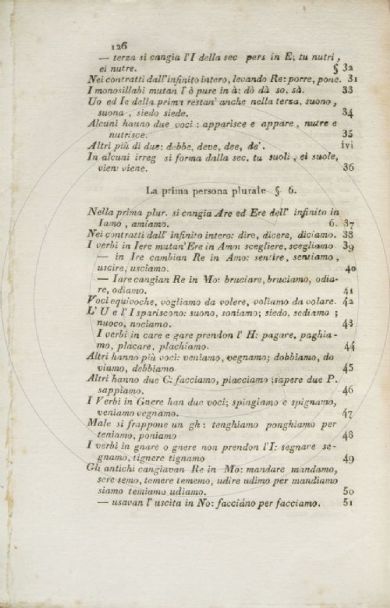 126
— terza si cangia l'I della sec pers in E, tu nutri,
ei nutre. § 32
Nei contratti dall'infinito intero, levando Re: porre, pone. 31
I monosillabi mutan l' ò pure in à: dò dà so, sà. 33
Uo ed Ie della prima restan' anche nella terza, suono,
suona, siedo siede. 34
Alcuni hanno due voci: apparisce e appare, nutre e
nutrisce. 35
Altri più di due: debbe, deve, dee, de'. ivi
In alcuni irreg si forma dalla sec. tu suoli, ei suole,
vien viene. 36
La prima persona plurale § 6.
Nella prima plur. si cangia Are ed Ere dell' infinito in
Iamo, amiamo. 6. 37
Nei contratti dall' infinito intero: dire, dicera, diciamo. 38
I verbi in Iere mutan' Ere in Amo: scegliere, scegliamo 39
— in Ire cambian Re in Amo: sentire, sentiamo,
uscire, usciamo. 40
— Iare cangian Re in Mo: bruciare, bruciamo, odia-
re, odiamo. 41
Voci equivoche, vogliamo da volere, voliamo da volare. 42
L' U e l' I spariscono: suono, soniamo; siedo, sediamo;
nuoco, nociamo. 43
I verbi in care e gare prendon l' H: pagare, paghia-
mo, placare, plachiamo. 44
Altri hanno più voci: veniamo, vegnamo; dobbiamo, do
viamo, debbiamo 45
Altri hanno due C: facciamo, piacciamo; sapere due P.
sappiamo. 46
I Verbi in Gnere han due voci; spingiamo e spignamo,
veniamo vegnamo. 47
Male si frappone un gh: tenghiamo ponghiamo per
teniamo, poniamo 48
I verbi in gnare o gnere non prendon l'I: segnare se-
gnamo, tignere tignamo 49
Gli antichi cangiavan Re in Mo: mandare mandamo,
sere semo, temere tememo, udire udimo per mandiamo
siamo temiamo udiamo. 50
— usavan l' uscita in No: facciàno per facciamo. 51